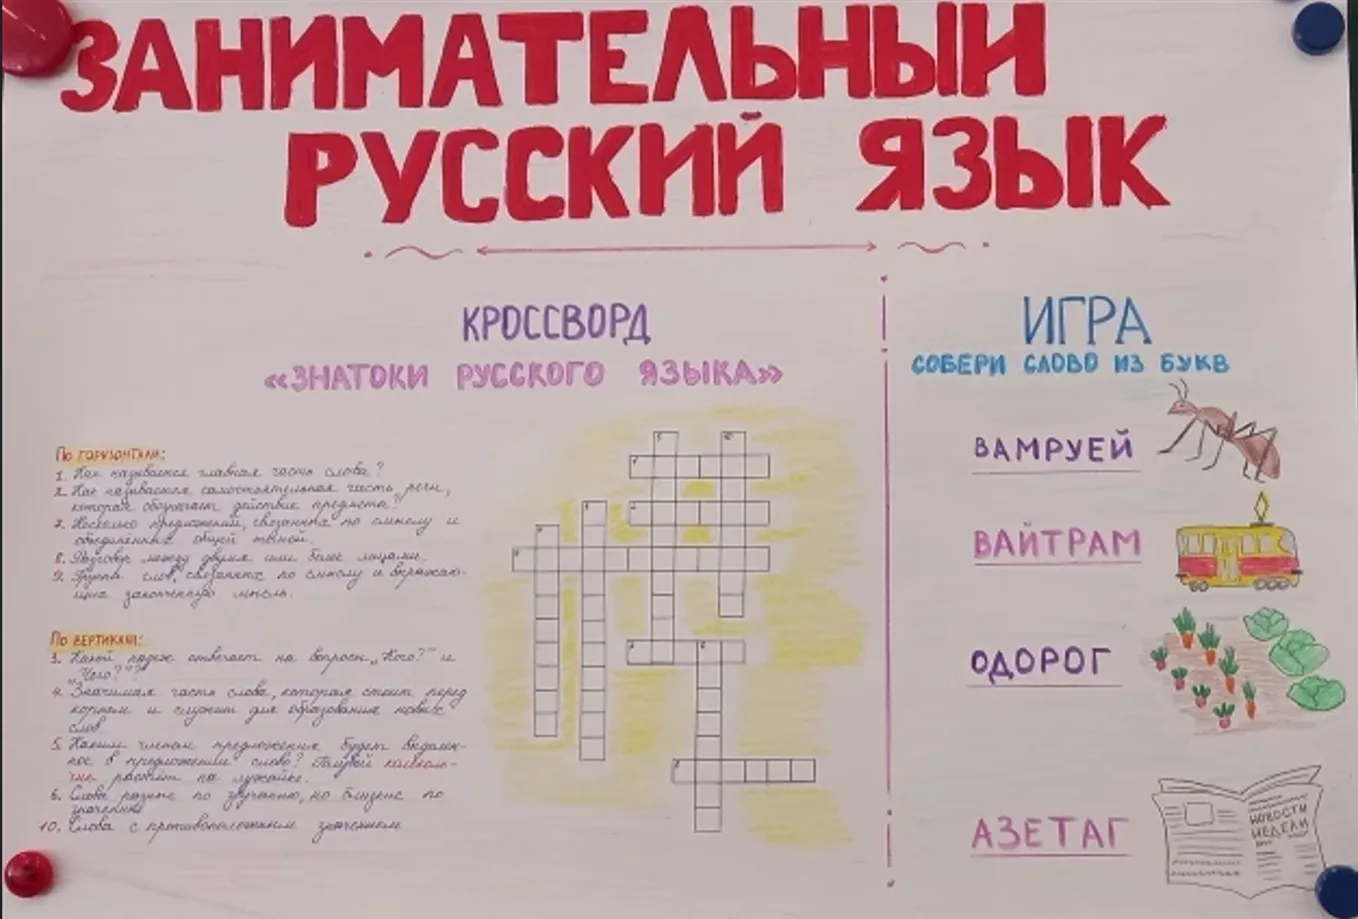 ЗАНИМАТЕЛЬНЫЙ
РУССКИЙ ЯЗЫК
КРОССВОРД
«ЗНАТОКИ РУССКОГО ЯЗЫКА»
По горизонтали:
1. Как называется главная часть слова?
2. Как называется самостоятельная часть речи,
которая обозначает действие предмета?
7. Несколько предложений, связанных по смыслу и
объединённых общей темой.
8. Разговор между двумя или более лицами.
9. Группа слов, связанных по смыслу и выражаю-
щие законченную мысль.
По вертикали:
3. Какой падеж отвечает на вопросы „Кого?" и
„Чего?"?
4. Значимая часть слова, которая стоит перед
корнем и служит для образования новых
слов
5. Каким членом предложения будет выделен-
ное в предложении слово? Голубой колоколь-
чик растёт на лужайке.
6. Слова разные по звучанию, но близкие по
значению
10. Слова с противоположным значением
ИГРА
СОБЕРИ СЛОВО ИЗ БУКВ
ВАМРУЕЙ
ВАЙТРАМ
ОДОРОГ
АЗЕТАГ
НОВОСТИ
НЕДЕЛИ